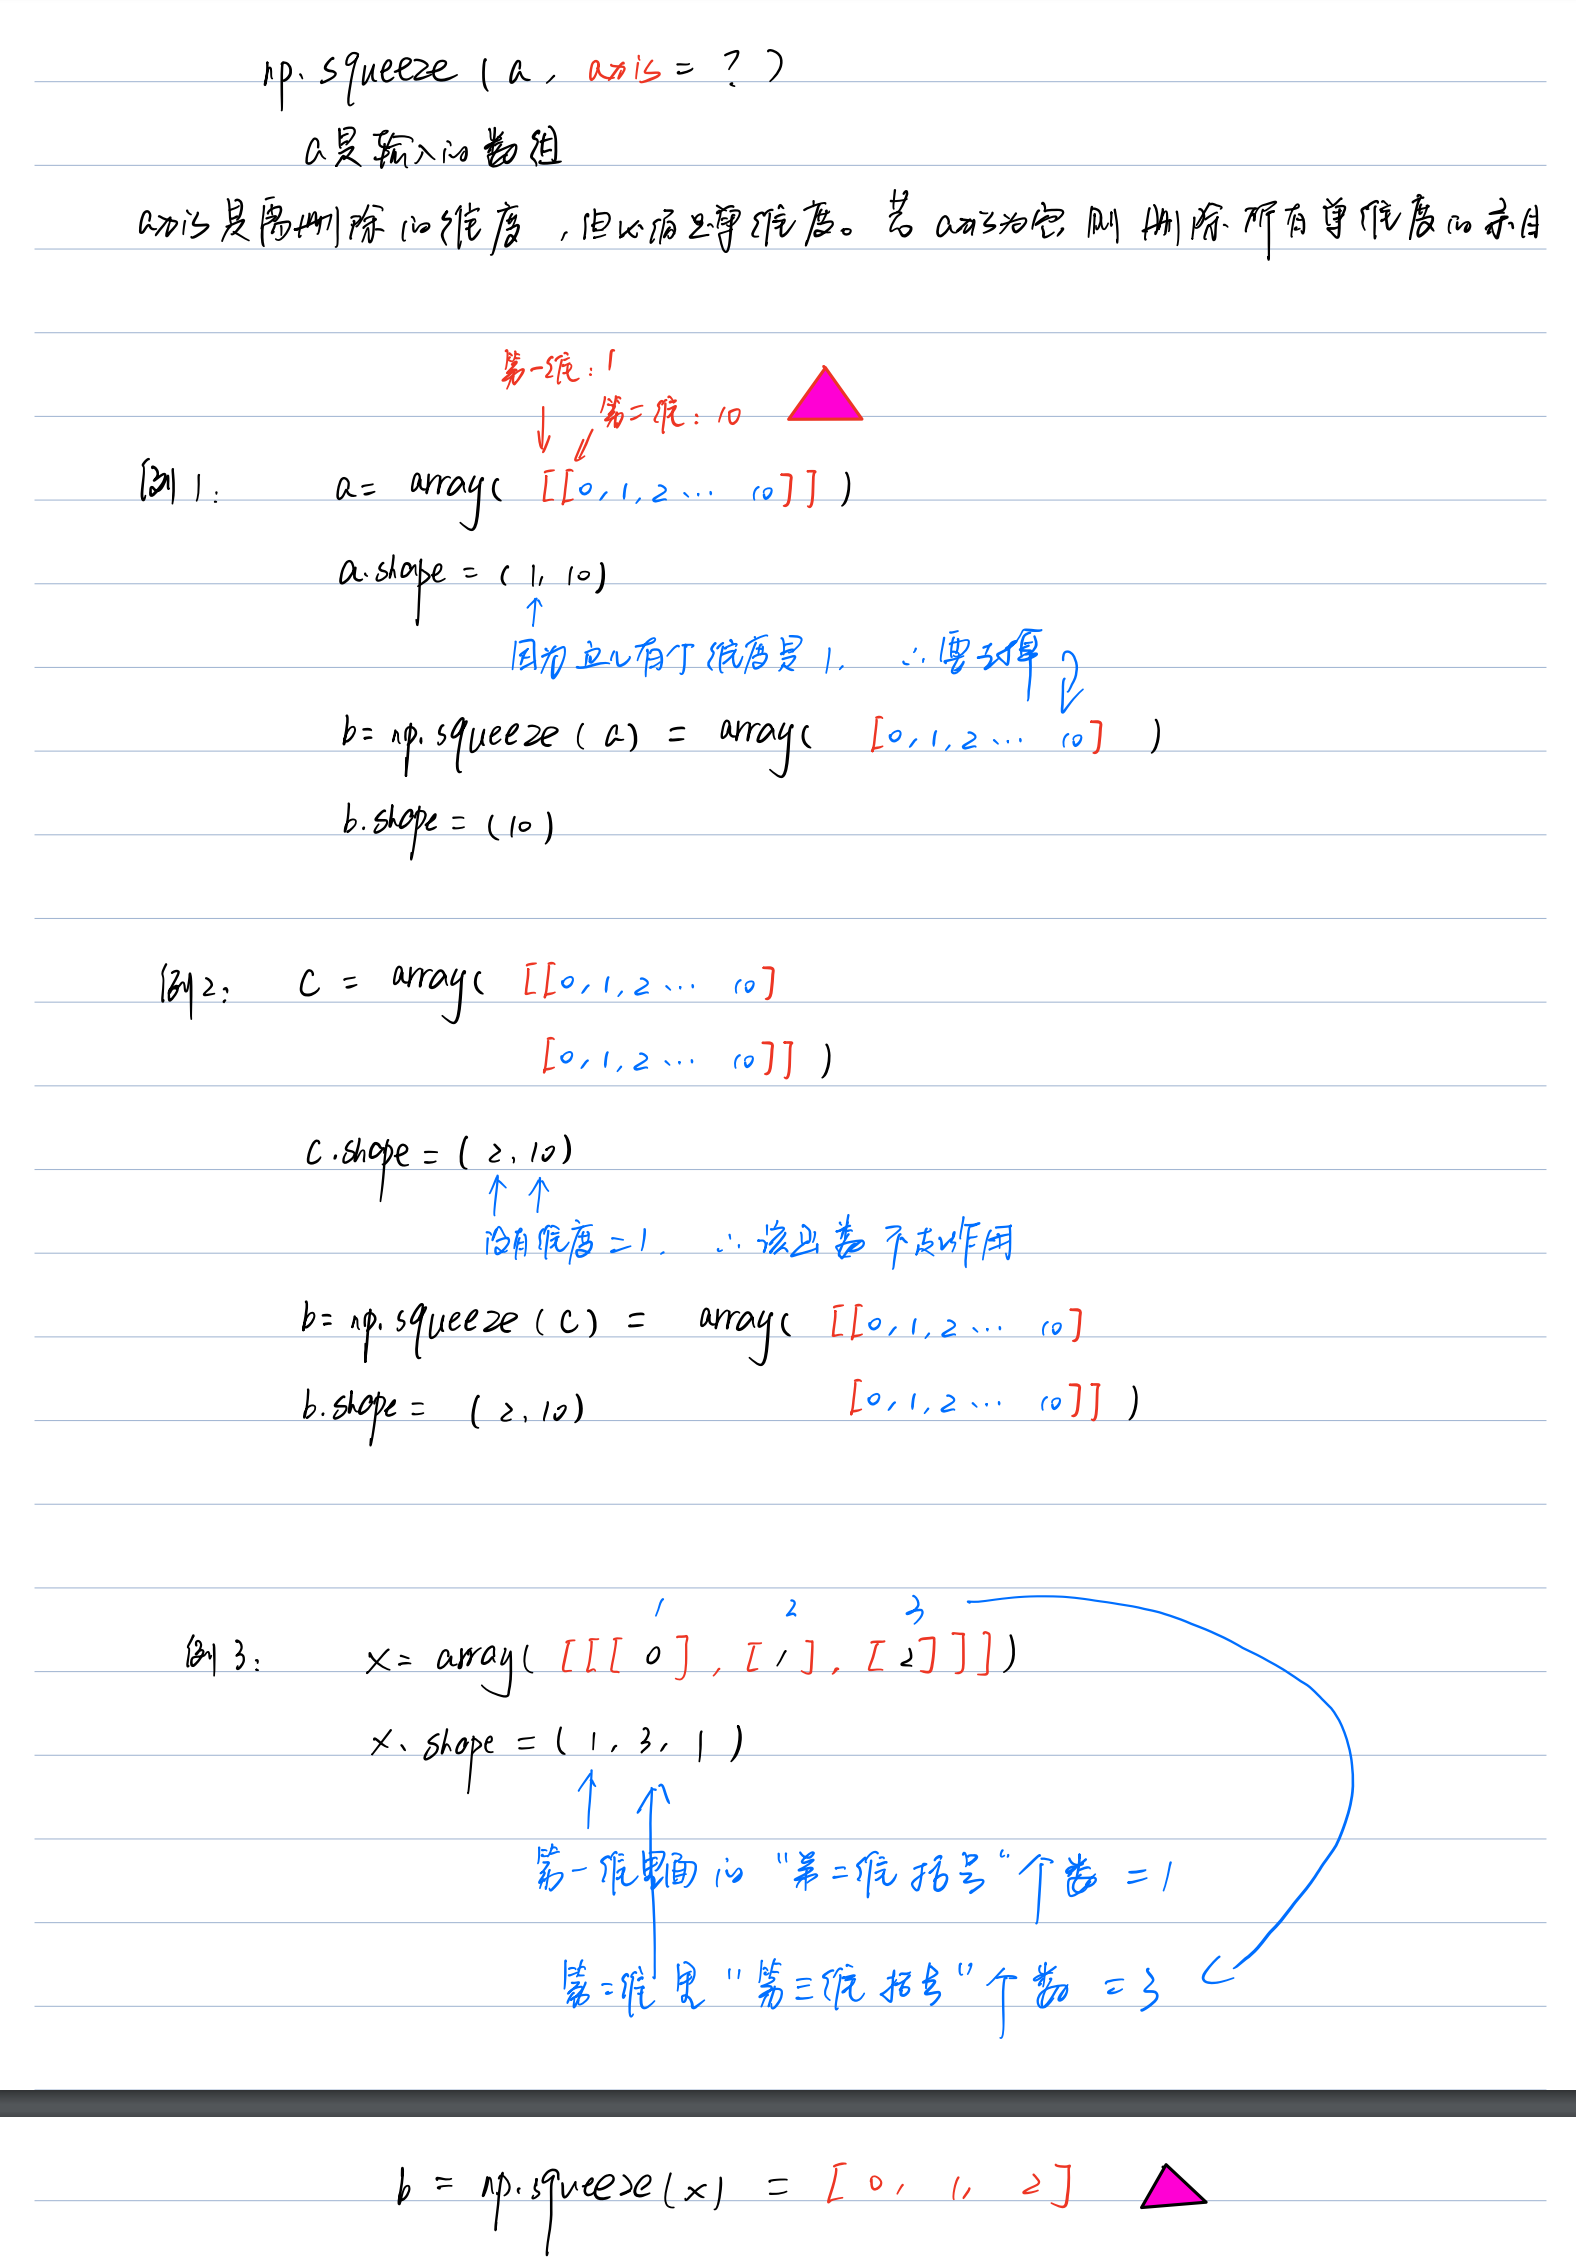 np.squeeze(a, axis=?)
a是输入的数组
axis是需删除的维度,但必须是单维度。若axis为空,则删除所有单维度的条目
第一维:1
第二维:10
例1: a= array([[0,1,2… 10]])
a.shape=(1,10)
因为这儿有个维度是1. ∴要去掉
b=np.squeeze(a) = array([0,1,2… 10])
b.shape=(10)
例2: c = array([[0,1,2… 10]
[0,1,2… 10]])
c.shape=(2,10)
没有维度=1. ∴该函数不起作用
b=np.squeeze(c) = array([[0,1,2… 10]
b.shape= (2,10) [0,1,2… 10]])
1 2 3
例3: x= array([[[0],[1],[2]]])
x.shape=(1,3,1)
第一维里面的"第二维括号"个数=1
第二维里"第三维括号"个数=3
b = np.squeeze(x) = [0, 1, 2]